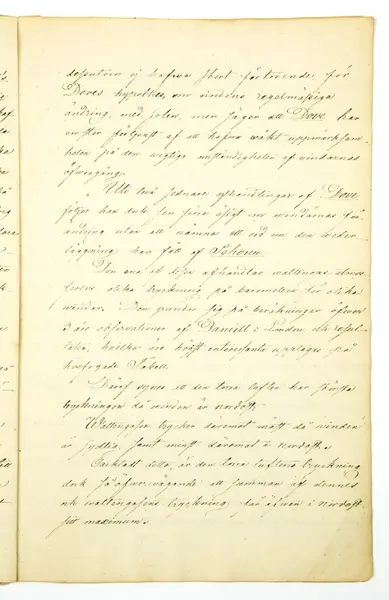 dessutom ej hafva stort förtroende för
Doves hypothes, om vindens regelmässiga
ändring med solen, men säger att Dove har
förtjenst af att hafva väckt uppmärksam-
heten på den vigtiga omständigheten af vindarnas
öfvergång.
Uti två sednare afhandlingar af Dove
följer han dock sin fina åsigt om vindarnas för-
ändring utan att nämna ett ord om den veder-
läggning han fått af Schouw.
Den ena af dessa afhandlar vattnets
olika tryckning på barometern för olika
vindar. Den grundar sig på beräkningar öfver
3 års observationer af Daniell i London och resul-
taterna, hvilka äro högst intressanta upptagas på
bifogade Tabell.
Deraf synes att den torra luften har största
tryckningen då vinden är nordost.
Vattengasen trycker deremot mäst då vinden
är sydlig samt minst deremot är nordost.
detta, är den torra luftens tryckning
dock så öfvervägande att summan af dennes
och vattengasens tryckning, har äfven i Nordost
sitt maximum.